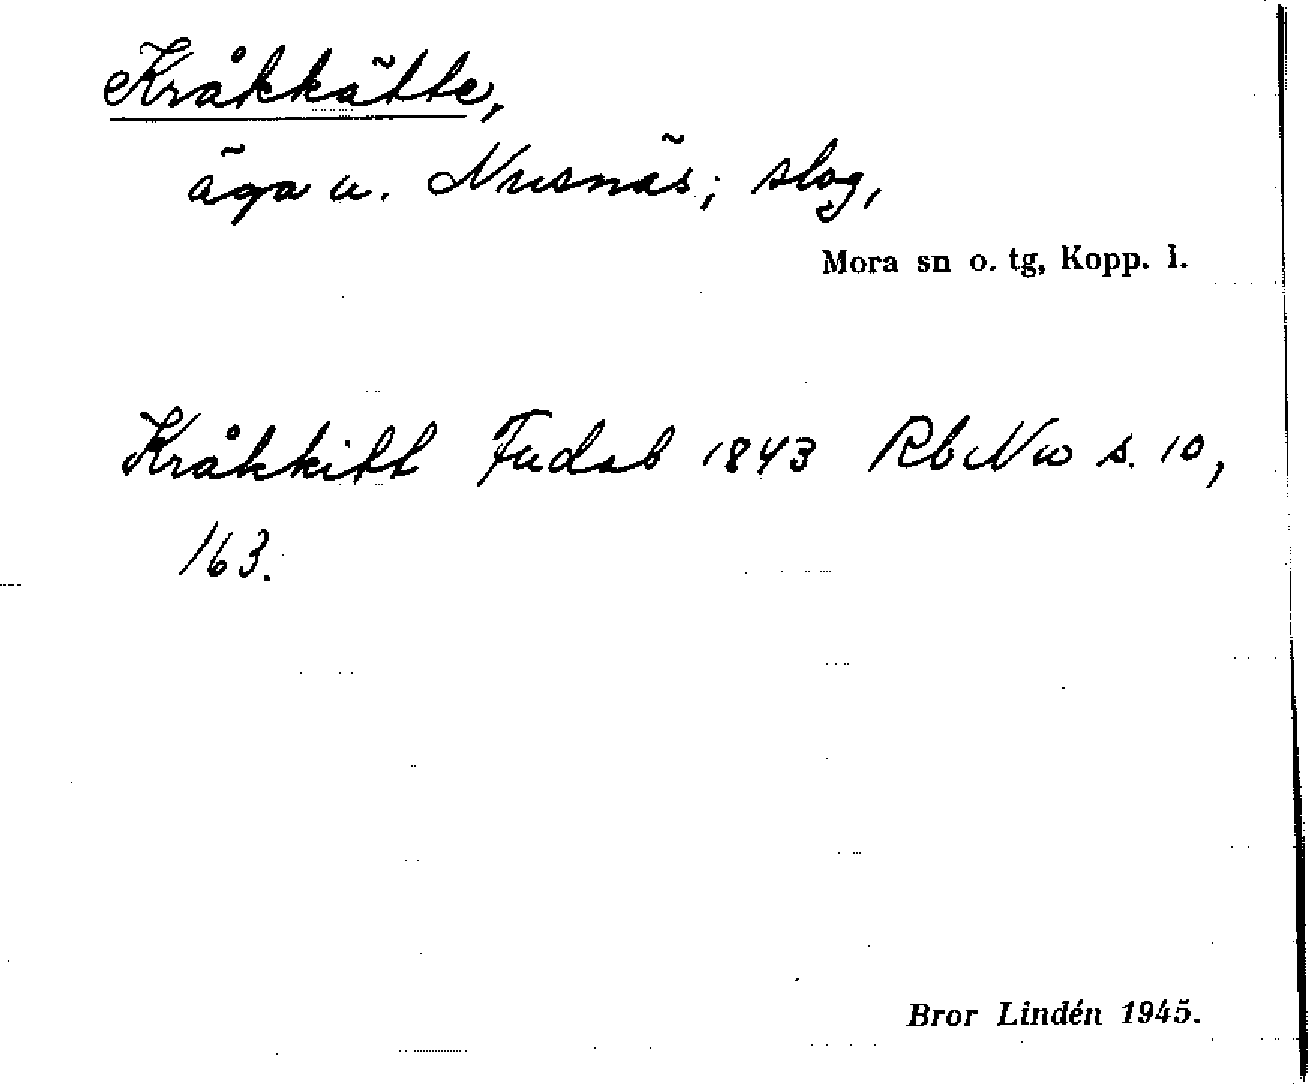 Kråkkätte,
äga u. Nusnäs; slog,
Mora sn o. tg, Kopp. l.
Kråkkitt Fudab 1843 RbNw s. 10,
163.
Bror Lindén 1945.